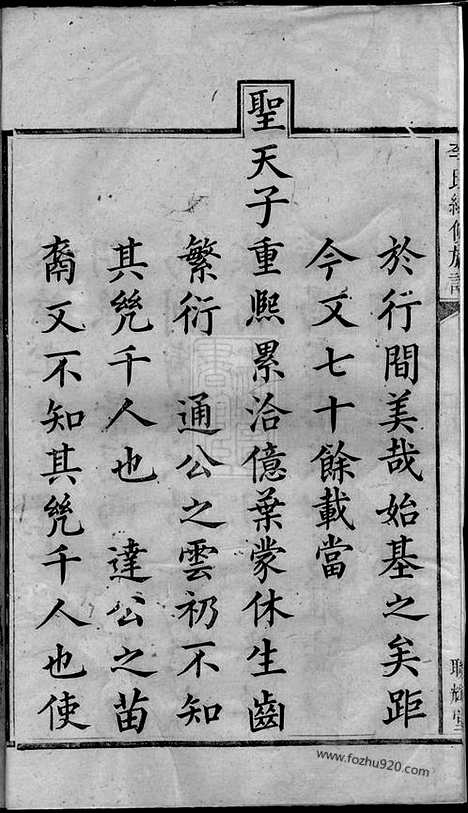 李氏續修族譜
聯輝堂
於行間美哉始基之矣距
今又七十餘載當
聖天子重熙累洽億葉蒙休生齒
繁衍　通公之雲礽不知
其凣千人也　達公之苗
裔又不知其凣千人也使
www.fozhu920.com